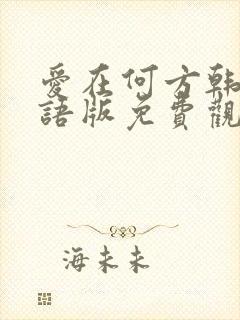 愛在何方韩
語版免費觀
海未未